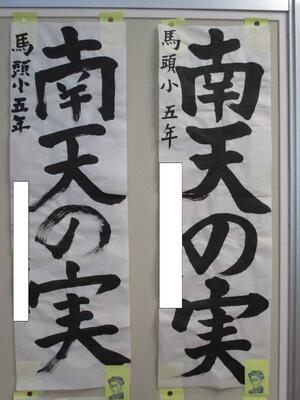 南天の実
馬頭小五年
南天の実
馬頭小 五年